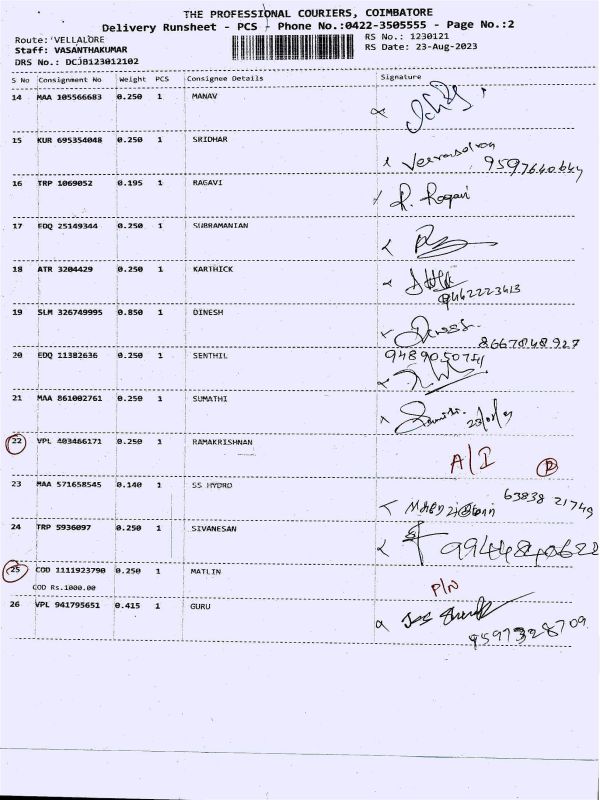 THE PROFESSIONAL COURIERS, COIMBATORE
Delivery Runsheet - PCS - Phone No.:0422-3505555 - Page No.:2
Route: VELLALORE RS No.: 1230121
Staff: VASANTHAKUMAR RS Date: 23-Aug-2023
DRS No.: DCJB123012102
S No Consignment No Weight PCS Consignee Details Signature
14 MAA 105566683 0.250 1 MANAV
15 KUR 695354048 0.250 1 SRIDHAR
9597640644
16 TRP 1069052 0.195 1 RAGAVI R. Ragavi
17 EDQ 25149344 0.250 1 SUBRAMANIAN
18 ATR 3204429 0.250 1 KARTHICK
9442223413
19 SLM 326749995 0.850 1 DINESH
8667848927
20 EDQ 11382636 0.250 1 SENTHIL 9489050754
21 MAA 861002761 0.250 1 SUMATHI
22 VPL 403466171 0.250 1 RAMAKRISHNAN A/I
23 MAA 571658545 0.140 1 SS HYDRO 63838 21749
24 TRP 5936097 0.250 1 SIVANESAN 9944840622
25 COD 1111923790 0.250 1 MATLIN
COD Rs.1000.00 P/N
26 VPL 941795651 0.415 1 GURU
9597328709